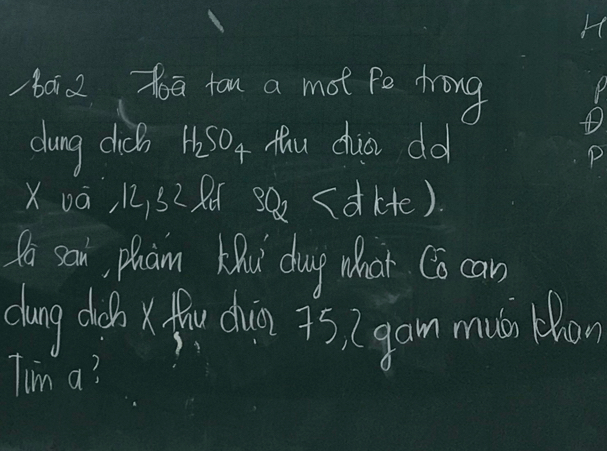 Bài 2 Hoà tan a mol Fe trong
dung dịch H₂SO₄ thu được dd
X và 12,32 lít SO₂ (đktc).
là sản phẩm khử duy nhất Cô cạn
dung dịch X thu được 75,2 gam muối khan
Tìm a?
H
P
Đ
P